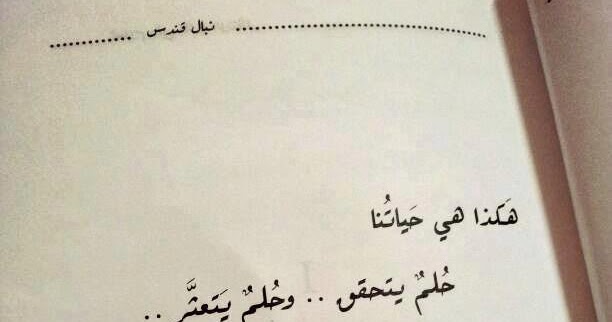 ............ نبال قندس ....................................
هَكذا هي حَياتُنا
حُلمٌ يتحقق .. وحُلمٌ يَتعثَّر ..